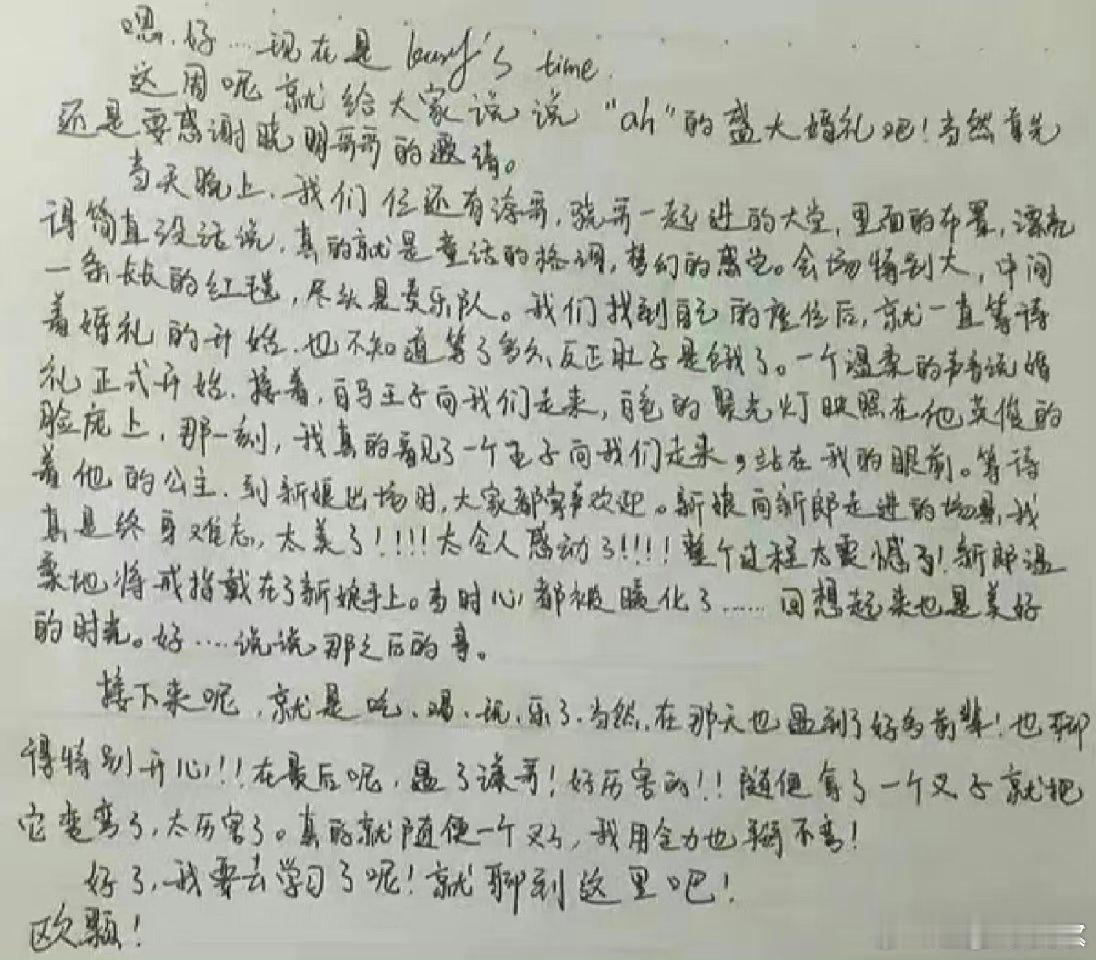 嗯.好…现在是 karry's time.
这周呢 就给大家说说 "ah"的盛大婚礼吧!当然首先
还是要感谢晓明哥哥的邀请。
当天晚上.我们仨还有涛哥,骁哥一起进的大堂,里面的布置,漂亮
得简直没话说,真的就是童话的格调,梦幻的感觉。会场特别大,中间
一条长长的红毯,尽头是奏乐队。我们找到自己的座位后,就一直等待
着婚礼的开始.也不知道等了多久,反正肚子是饿了。一个温柔的声音说婚
礼正式开始.接着,白马王子向我们走来,白色的聚光灯映照在他英俊的
脸庞上,那一刻,我真的看见了一个王子向我们走来,站在我的眼前。等待
着他的公主.到新娘出场时,大家都掌声欢迎。新娘向新郎走进的场景,我
真是终身难忘,太美了!!!!太令人感动了!!!!整个过程太震憾了!新郎温
柔地将戒指戴在了新娘手上。当时心都被暖化了……回想起来也是美好
的时光。好……说说那之后的事。
接下来呢,就是吃、喝、玩、乐了.当然.在那天也遇到了好多前辈!也聊
得特别开心!!在最后呢,遇了谦哥!好厉害的!!随便拿了一个叉子就把
它变弯了,太厉害了。真的就随便一个叉子,我用全力也掰不弯!
好了,我要去学习了呢!就聊到这里吧!
欧颗!